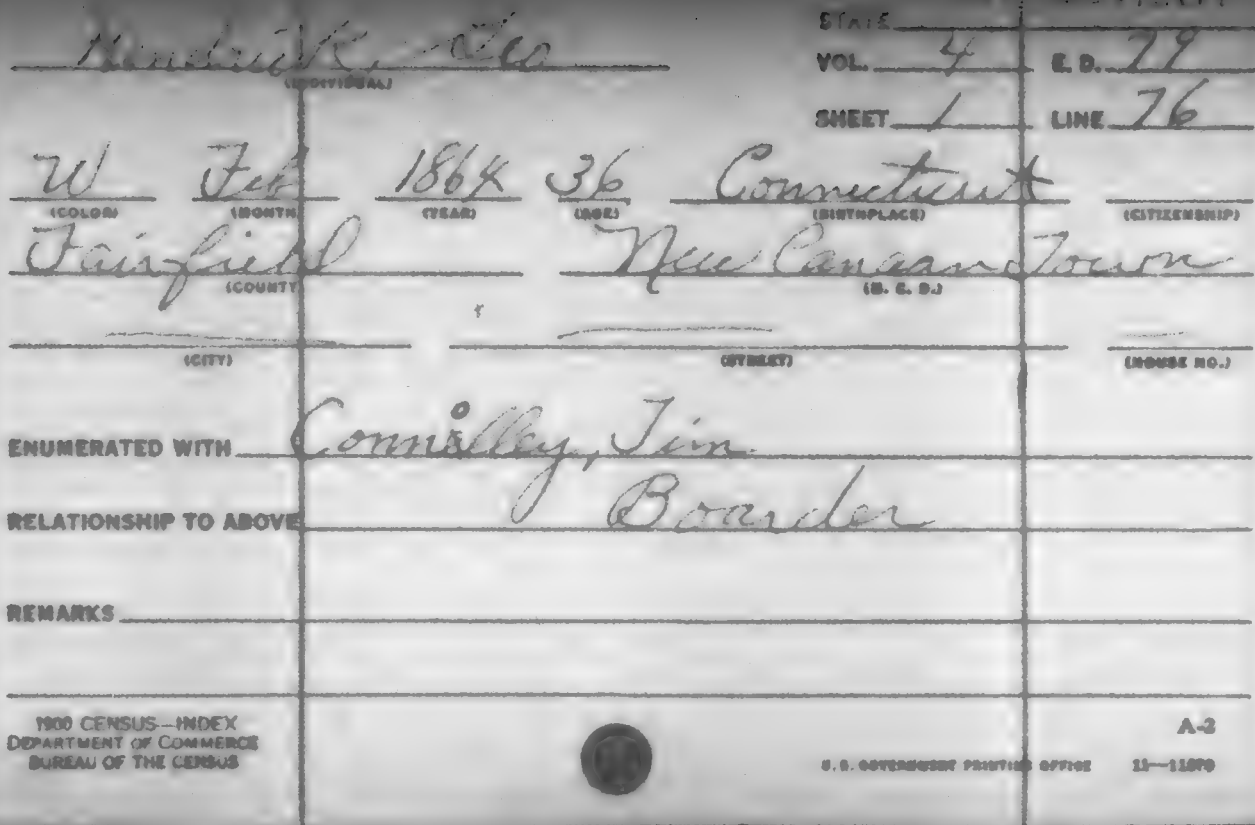 STATE
Hendrick, Geo
VOL. 4 E. D. 79
(INDIVIDUAL)
SHEET 1 LINE 76
W Feb 1864 36 Connecticut
(COLOR) (MONTH) (YEAR) (AGE) (BIRTHPLACE) (CITIZENSHIP)
Fairfield New Canaan Town
(COUNTY) (M. C. D.)
(CITY) (STREET) (HOUSE NO.)
ENUMERATED WITH Connolley, Tim
RELATIONSHIP TO ABOVE Boarder
REMARKS
1900 CENSUS—INDEX
DEPARTMENT OF COMMERCE
BUREAU OF THE CENSUS
A-2
U.S. GOVERNMENT PRINTING OFFICE 11—11870